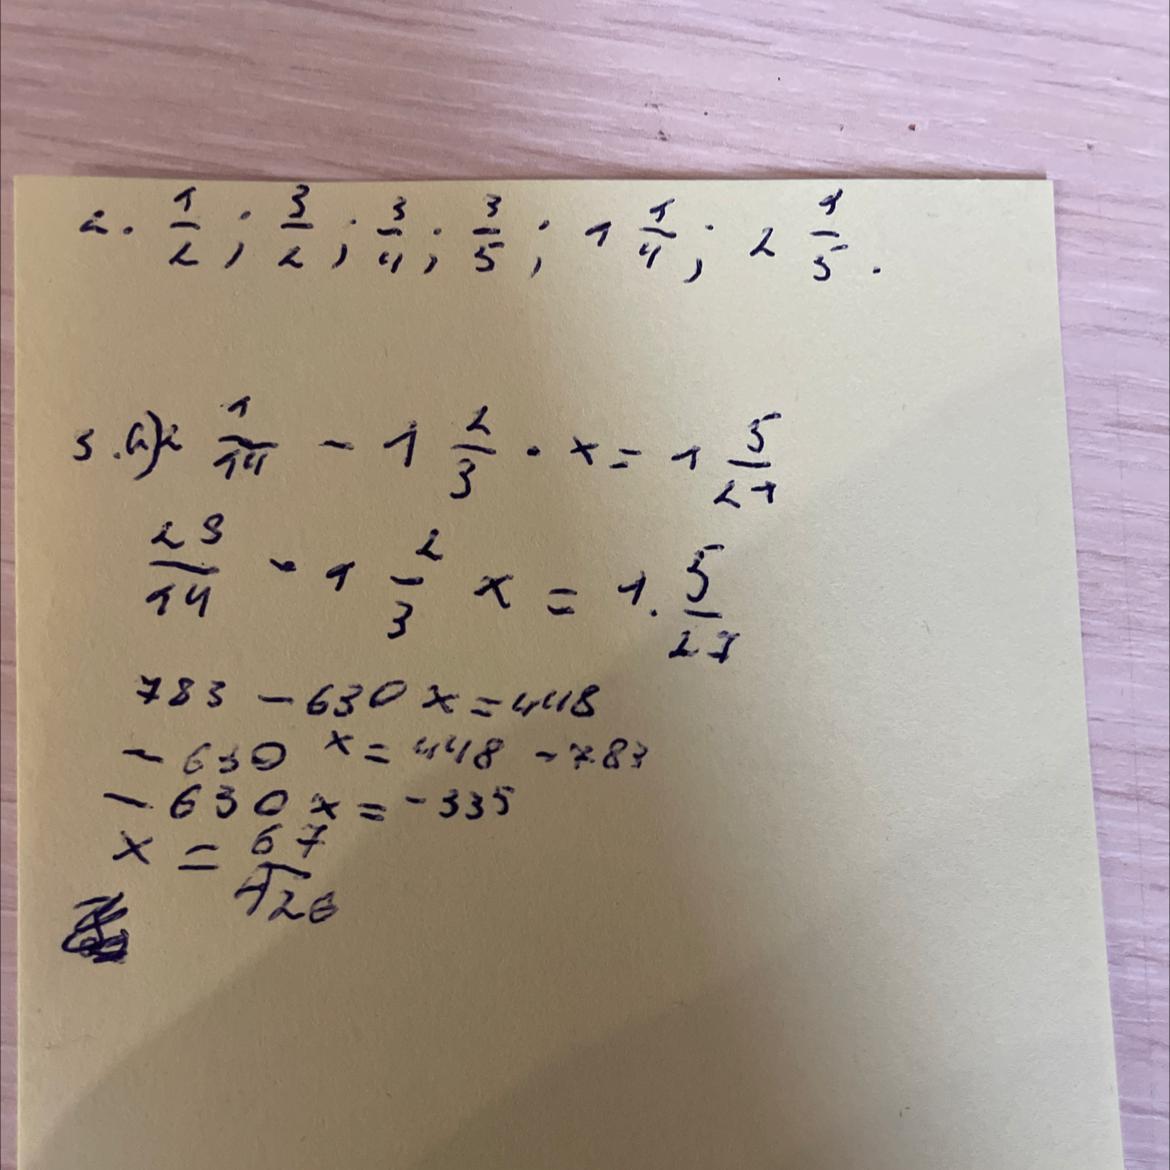 2. 1/2; 3/2; 3/4; 3/5; 1 1/4; 2 1/5.
3. a) 2 1/14 - 1 2/3 · x = 1 5/27
29/14 - 1 2/3 x = 1. 5/27
783 - 630 x = 448
- 630 x = 448 - 783
- 630 x = - 335
x = 67/126